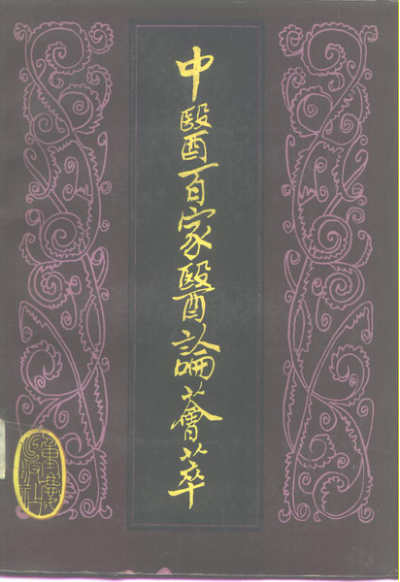 中醫百家醫論薈萃